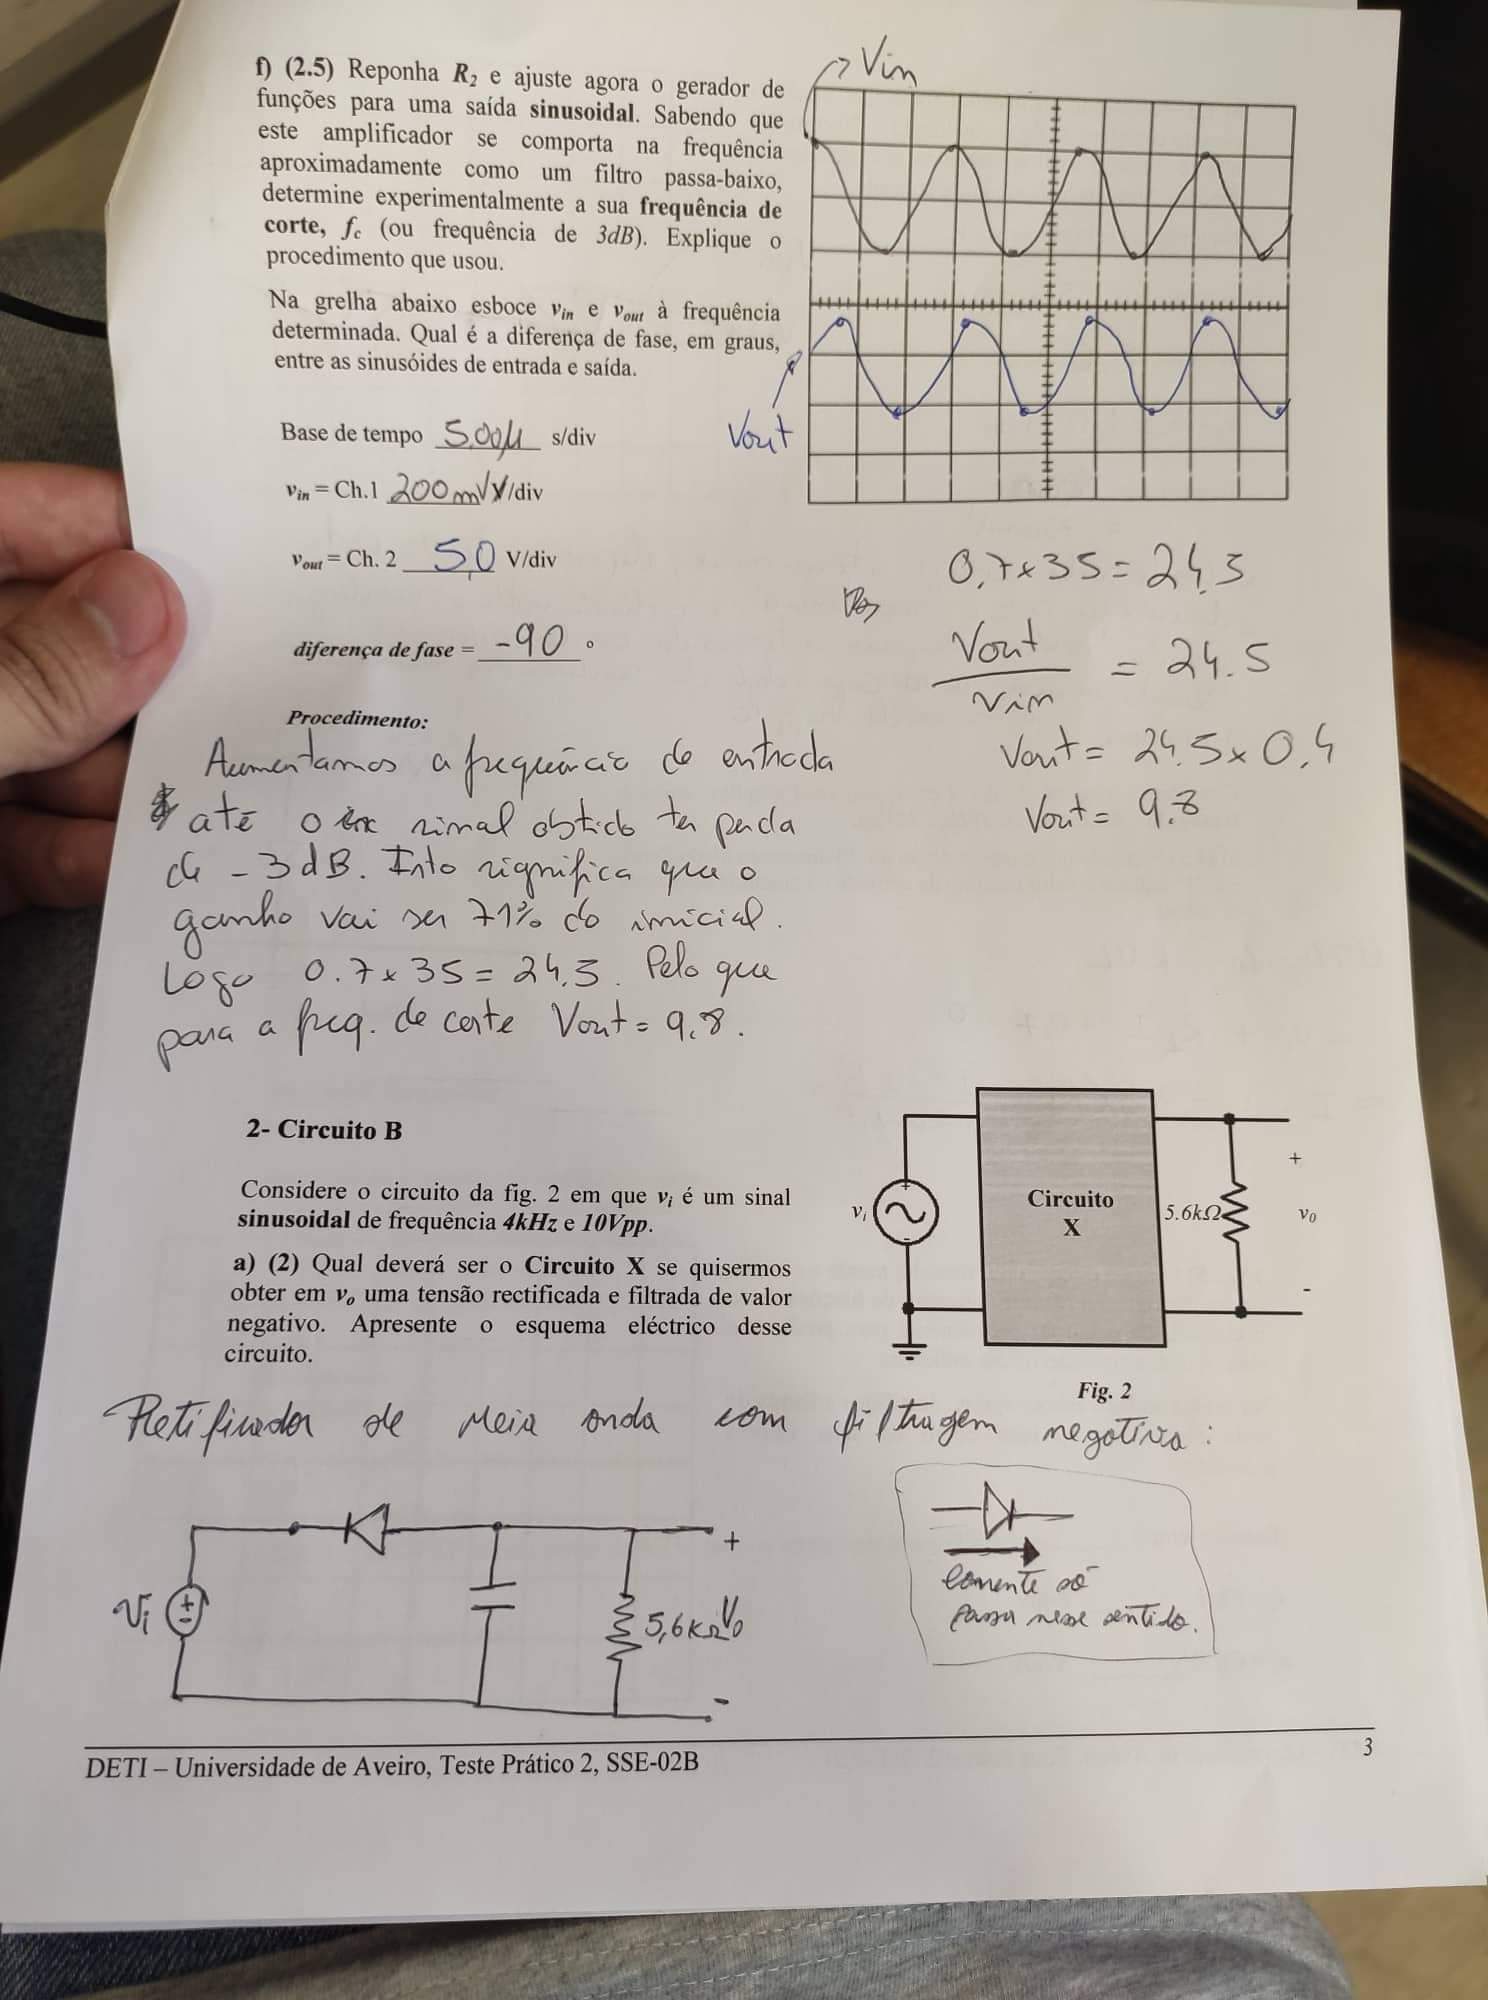 f) (2.5) Reponha R2 e ajuste agora o gerador de
funções para uma saída sinusoidal. Sabendo que
este amplificador se comporta na frequência
aproximadamente como um filtro passa-baixo,
determine experimentalmente a sua frequência de
corte, fc (ou frequência de 3dB). Explique o
procedimento que usou.
Na grelha abaixo esboce vin e vout à frequência
determinada. Qual é a diferença de fase, em graus,
entre as sinusóides de entrada e saída.
Vin
Vout
Base de tempo 5.00µ s/div
vin = Ch.1 200mV V/div
vout = Ch. 2 5,0 V/div
diferença de fase = -90 °
0,7x35 = 24,5
Vout
Vin
= 24.5
Vout = 24.5 x 0,4
Vout = 9.8
Procedimento:
Aumentamos a frequência de entrada
até o sinal obtido ter perda
de -3dB. Isto significa que o
ganho vai ser 71% do inicial.
Logo 0.7x35 = 24,5. Pelo que
para a freq. de corte Vout = 9.8.
2- Circuito B
Considere o circuito da fig. 2 em que vi é um sinal
sinusoidal de frequência 4kHz e 10Vpp.
a) (2) Qual deverá ser o Circuito X se quisermos
obter em vo uma tensão rectificada e filtrada de valor
negativo. Apresente o esquema eléctrico desse
circuito.
vi
+
-
Circuito
X
5.6kΩ
+
v0
-
Fig. 2
Retificador de meia onda com filtragem negativa:
Vi
+
-
5,6kΩ
+
V0
-
Corrente só
passa nesse sentido.
DETI – Universidade de Aveiro, Teste Prático 2, SSE-02B
3